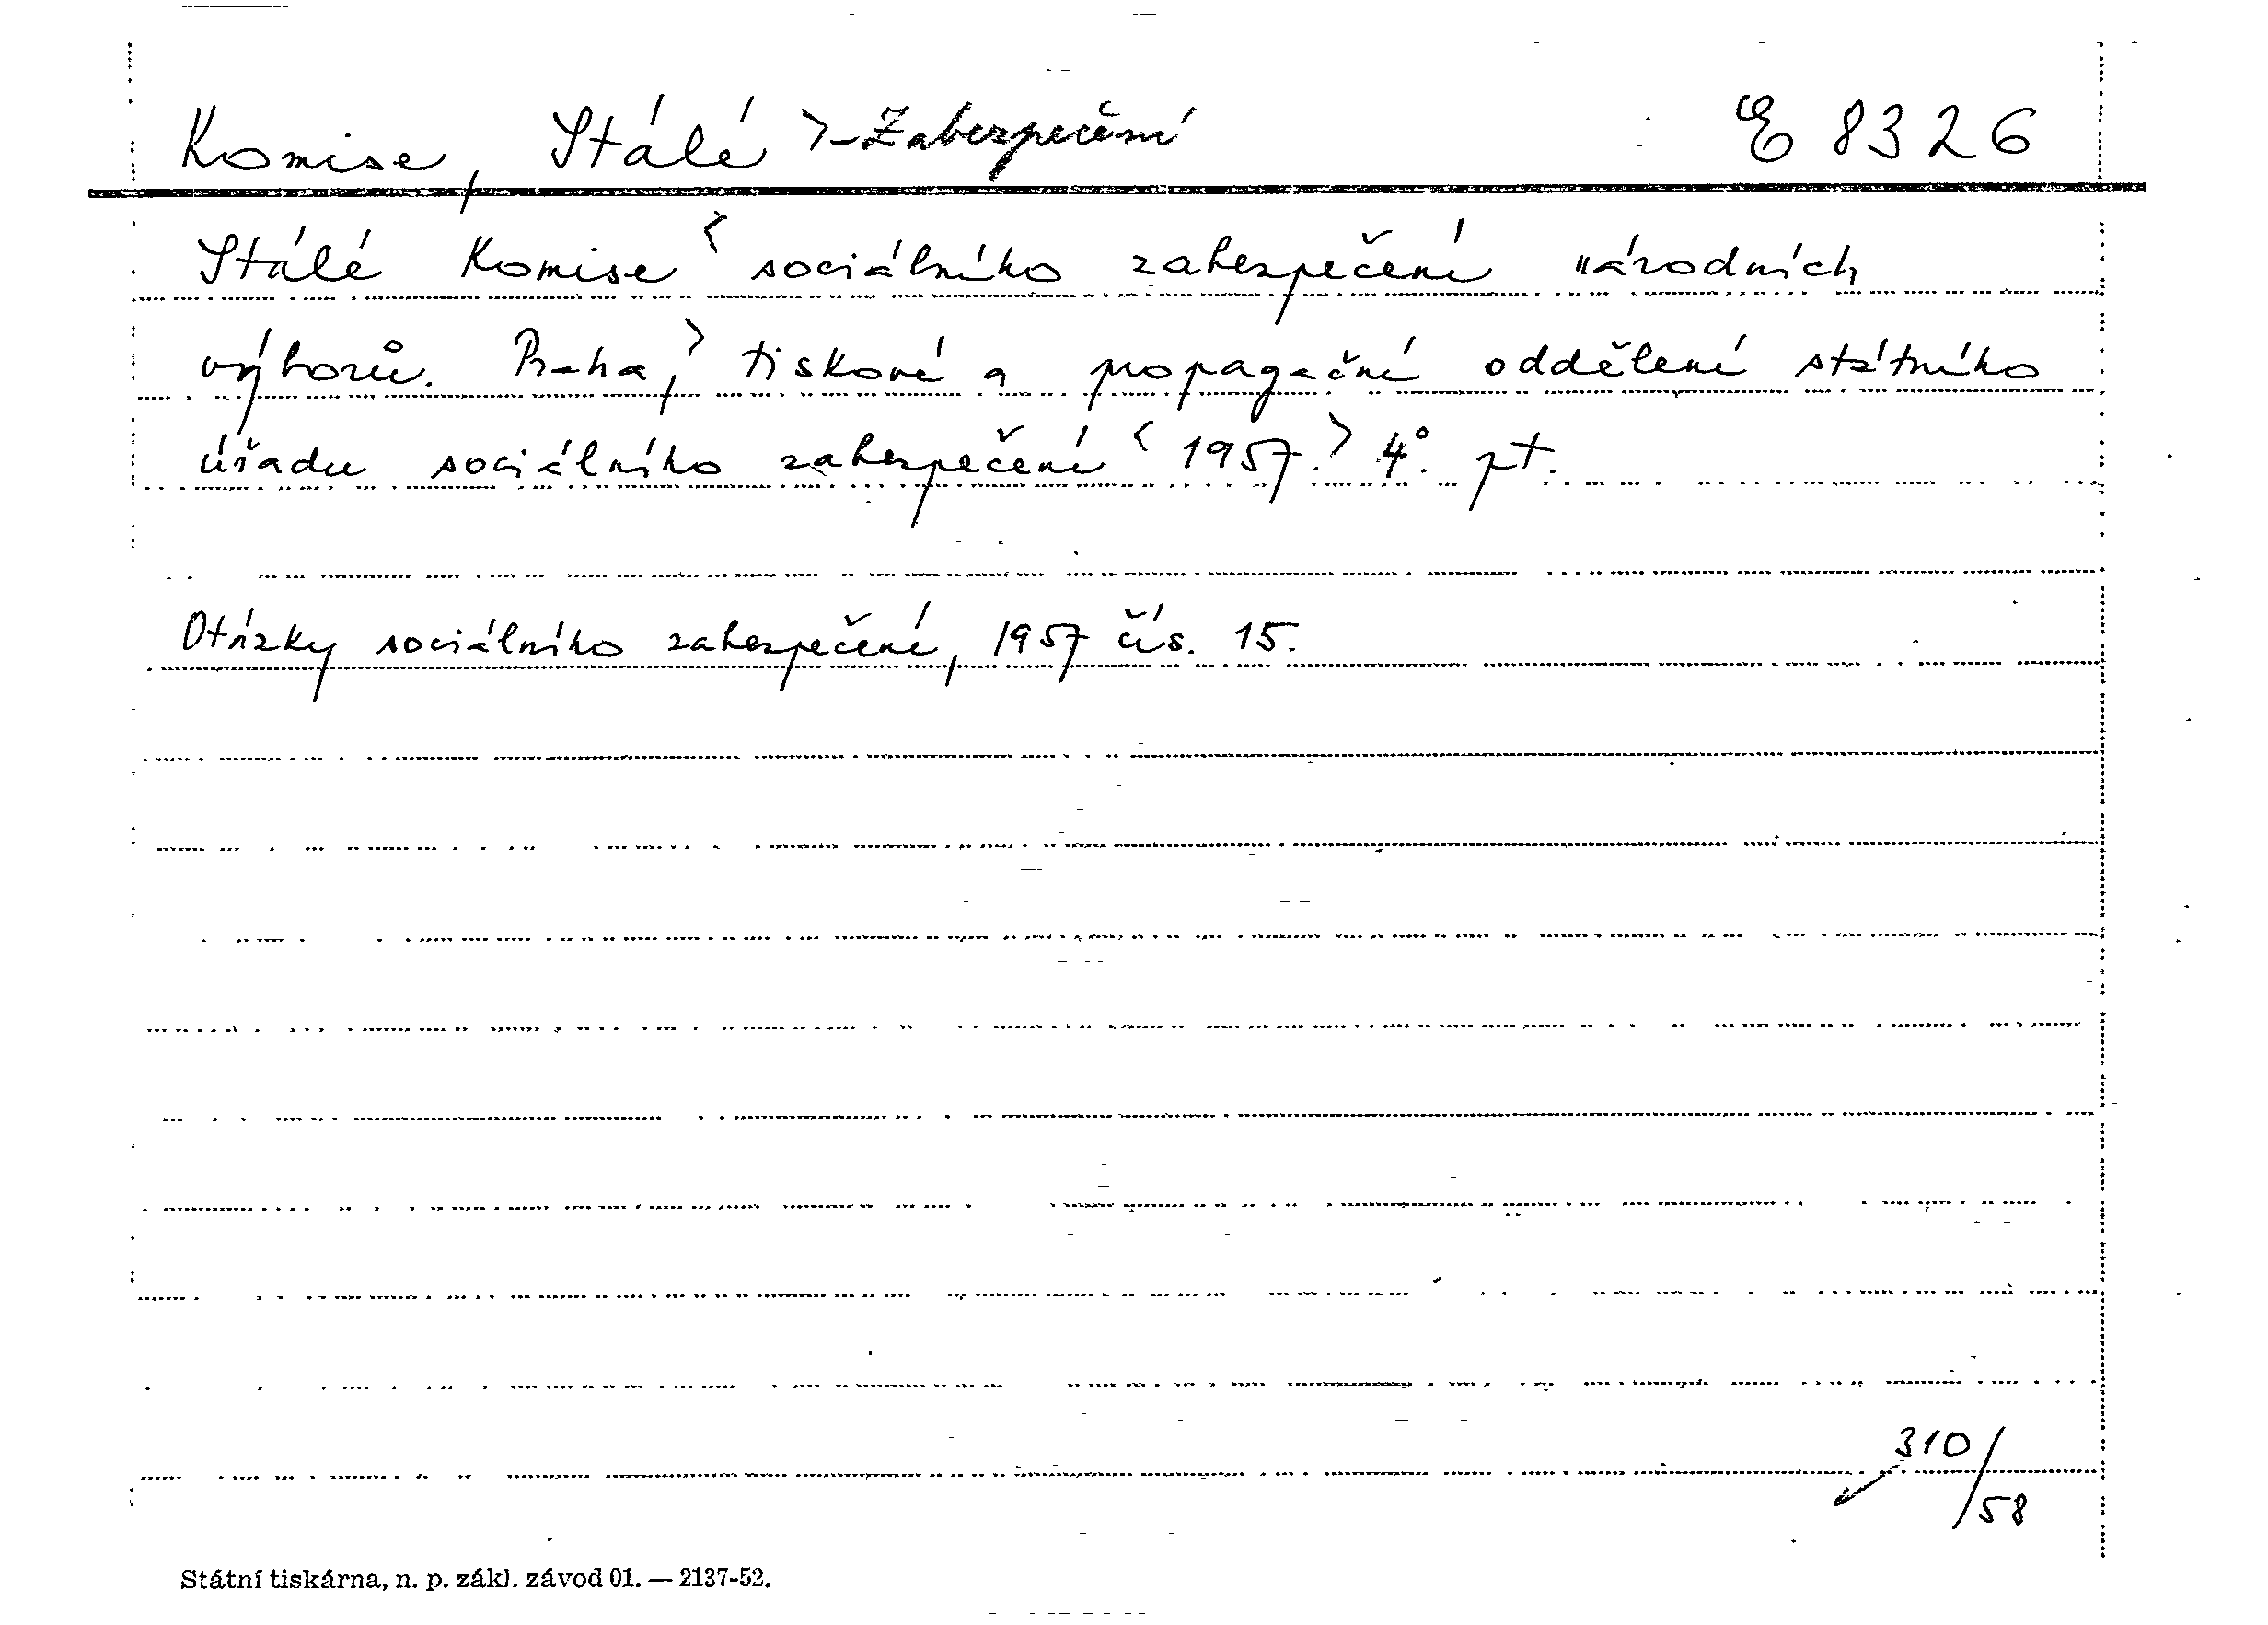 Komise, Stálé >-Zabezpečení E 8326
Stálé Komise < sociálního zabezpečení národních
výborů. Praha, > tiskové a propagační oddělení státního
úřadu sociálního zabezpečení < 1957. > 4°. pt.
Otázky sociálního zabezpečení, 1957 čís. 15.
310/58
Státní tiskárna, n. p. zákl. závod 01. — 2137-52.